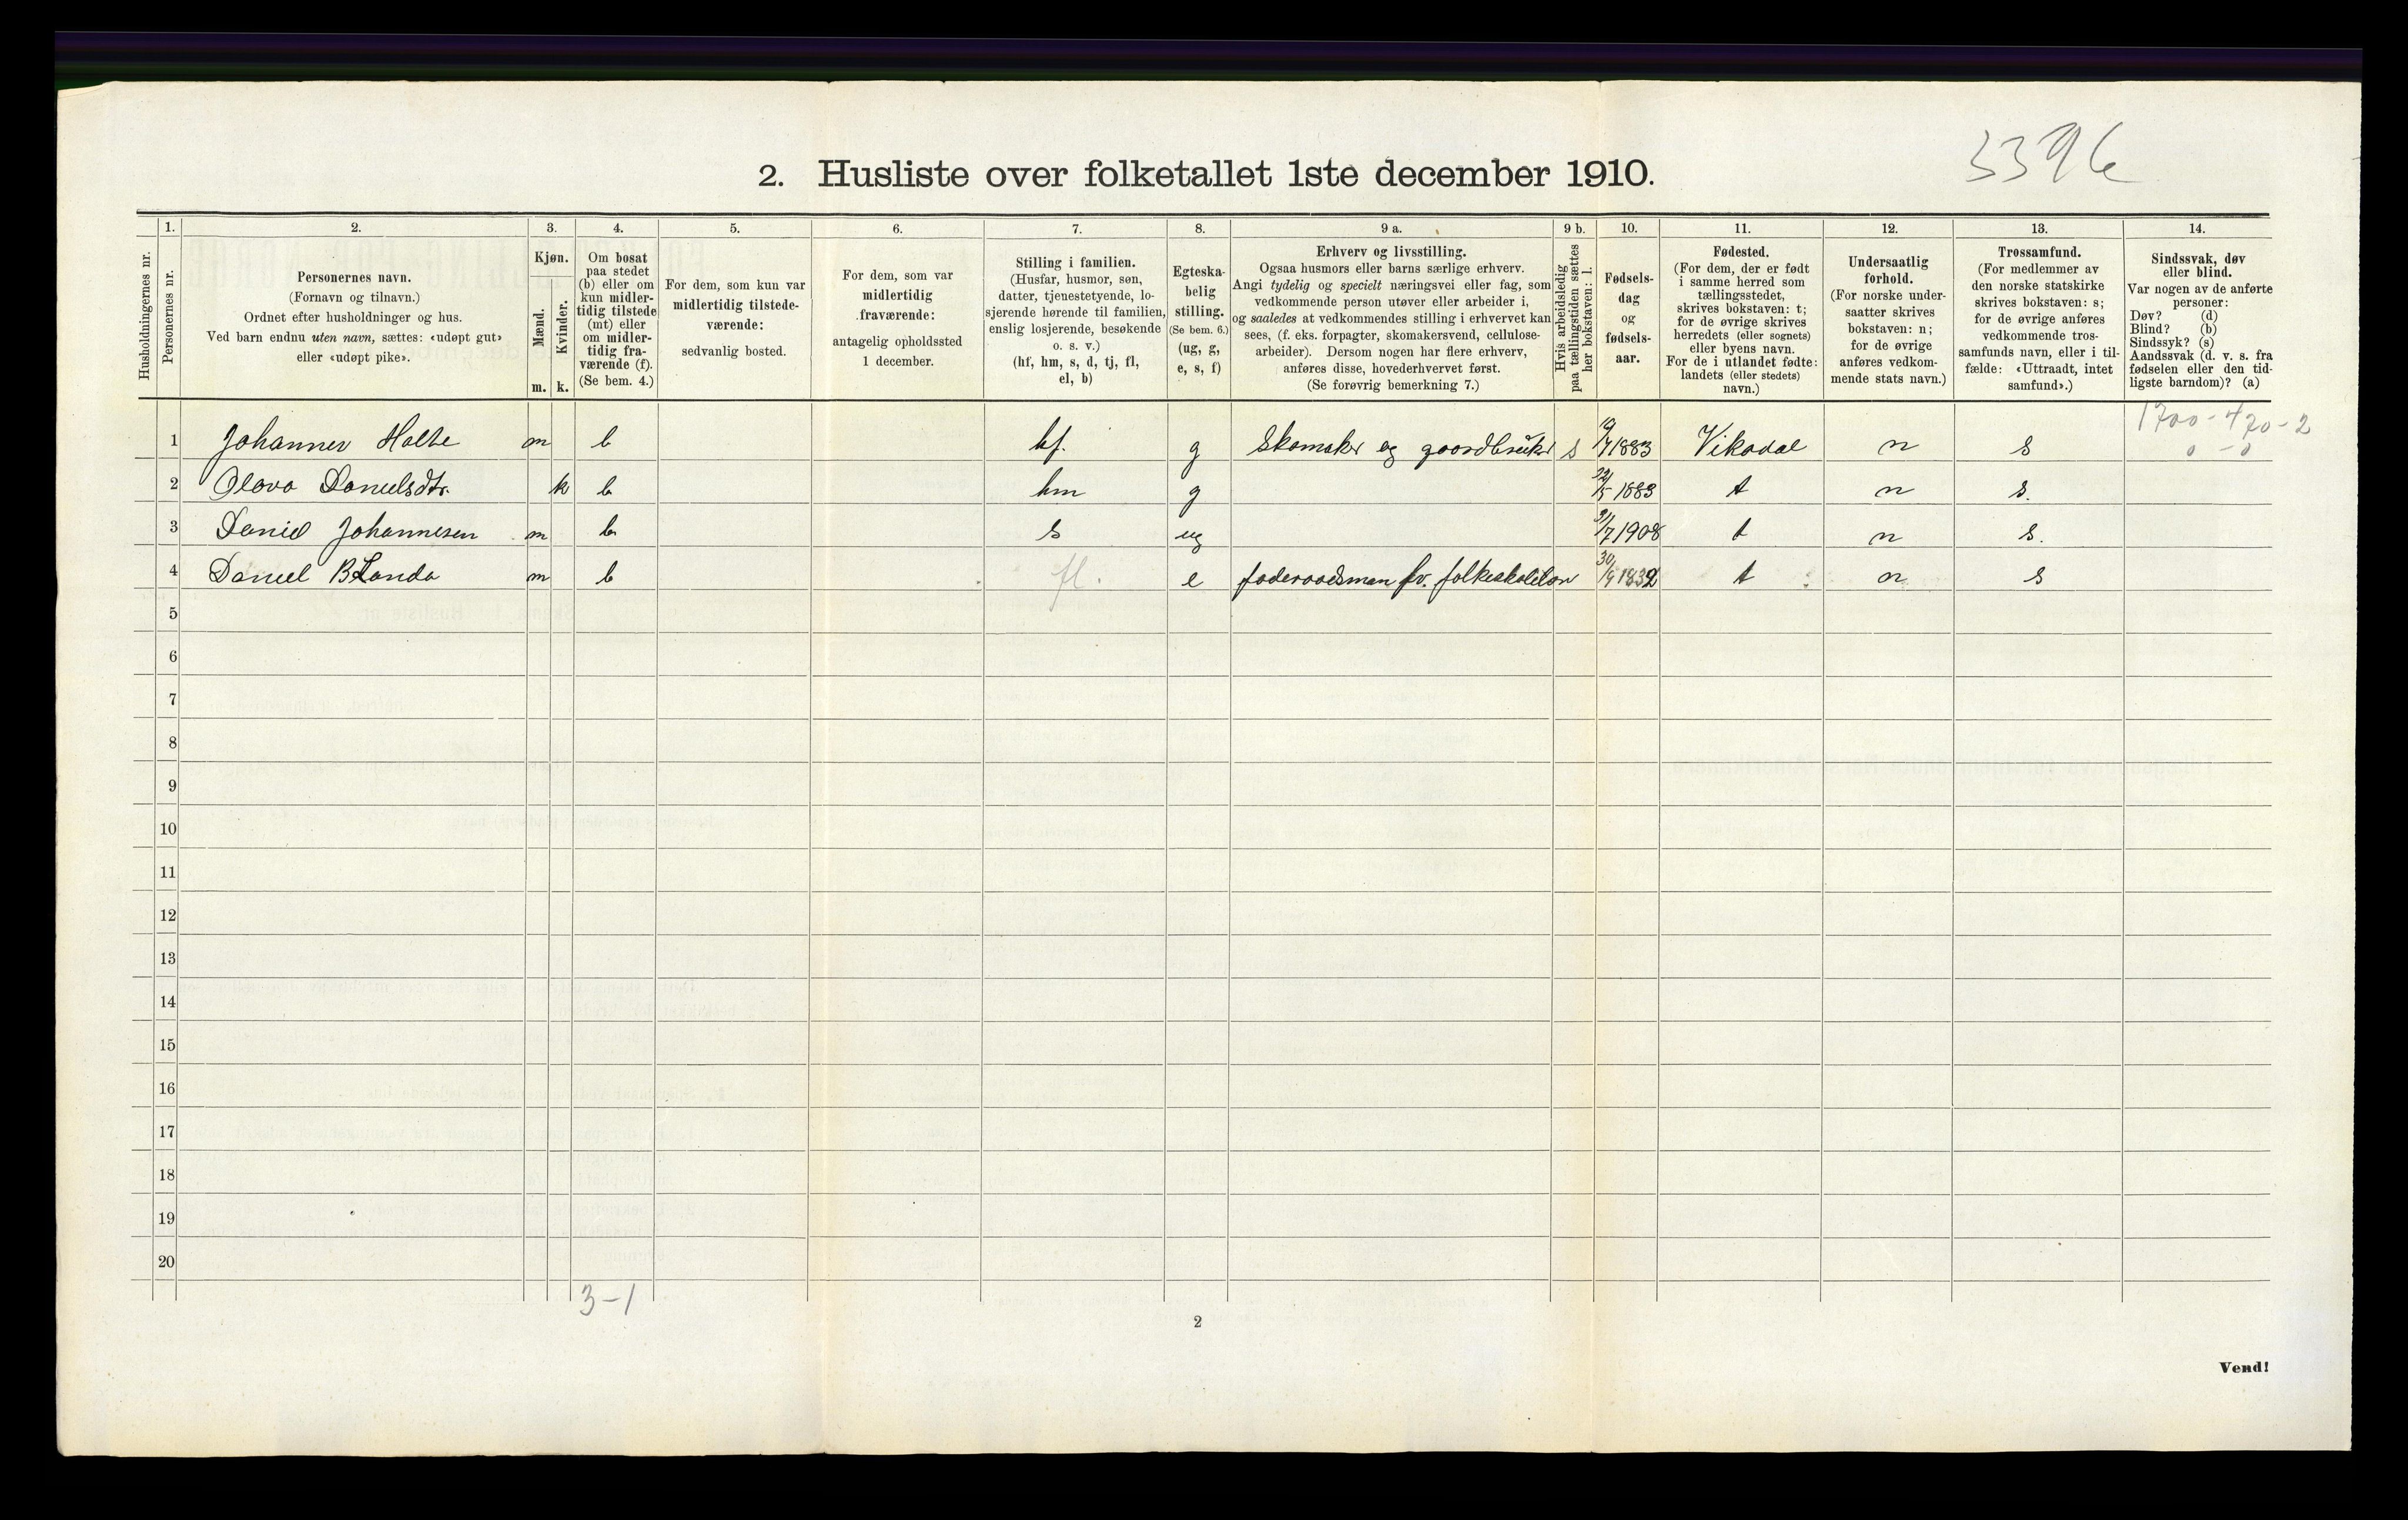 3396
2. Husliste over folketallet 1ste december 1910.
Husholdningernes nr.
1.
Personernes nr.
2.
Personernes navn.
(Fornavn og tilnavn.)
Ordnet efter husholdninger og hus.
Ved barn endnu uten navn, sættes: «udøpt gut»
eller «udøpt pike».
3.
Kjøn.
Mænd.
Kvinder.
m. k.
4.
Om bosat
paa stedet
(b) eller om
kun midler-
tidig tilstede
(mt) eller
om midler-
tidig fra-
værende (f).
(Se bem. 4.)
5.
For dem, som kun var
midlertidig tilstede-
værende:
sedvanlig bosted.
6.
For dem, som var
midlertidig
fraværende:
antagelig opholdssted
1 december.
7.
Stilling i familien.
(Husfar, husmor, søn,
datter, tjenestetyende, lo-
sjerende hørende til familien,
enslig losjerende, besøkende
o. s. v.)
(hf, hm, s, d, tj, fl,
el, b)
8.
Egteska-
belig
stilling.
(Se bem. 6.)
(ug, g,
e, s, f)
9 a.
Erhverv og livsstilling.
Ogsaa husmors eller barns særlige erhverv.
Angi tydelig og specielt næringsvei eller fag, som
vedkommende person utøver eller arbeider i,
og saaledes at vedkommendes stilling i erhvervet kan
sees, (f. eks. forpagter, skomakersvend, cellulose-
arbeider). Dersom nogen har flere erhverv,
anføres disse, hovederhvervet først.
(Se forøvrig bemerkning 7.)
9 b.
Hvis arbeidsledig
paa tællingstiden sættes
her bokstaven: l.
10.
Fødsels-
dag
og
fødsels-
aar.
11.
Fødested.
(For dem, der er født
i samme herred som
tællingsstedet,
skrives bokstaven: t;
for de øvrige skrives
herredets (eller sognets)
eller byens navn.
For de i utlandet fødte:
landets (eller stedets)
navn.)
12.
Undersaatlig
forhold.
(For norske under-
saatter skrives
bokstaven: n;
for de øvrige
anføres vedkom-
mende stats navn.)
13.
Trossamfund.
(For medlemmer av
den norske statskirke
skrives bokstaven: s;
for de øvrige anføres
vedkommende tros-
samfunds navn, eller i til-
fælde: «Uttraadt, intet
samfund».)
14.
Sindssvak, døv
eller blind.
Var nogen av de anførte
personer:
Døv? (d)
Blind? (b)
Sindssyk? (s)
Aandssvak (d. v. s. fra
fødselen eller den tid-
ligste barndom)? (a)
1700-470-2
0 - 0
1 Johannes Holte m b hf. g Skomaker og gaardbruker s /7 1883 Vikadal n s
2 Olava Danielsdtr. k b hm g 1883 t n s.
3 Daniel Johannesen m b s ug /7 1908 t n s.
4 Daniel B Landa m b fl. e foderaadsman fv. folkeskole 30/9 1832 t n s
5
6
7
8
9
10
11
12
13
14
15
16
17
18
19
20
3-1
2
Vend!